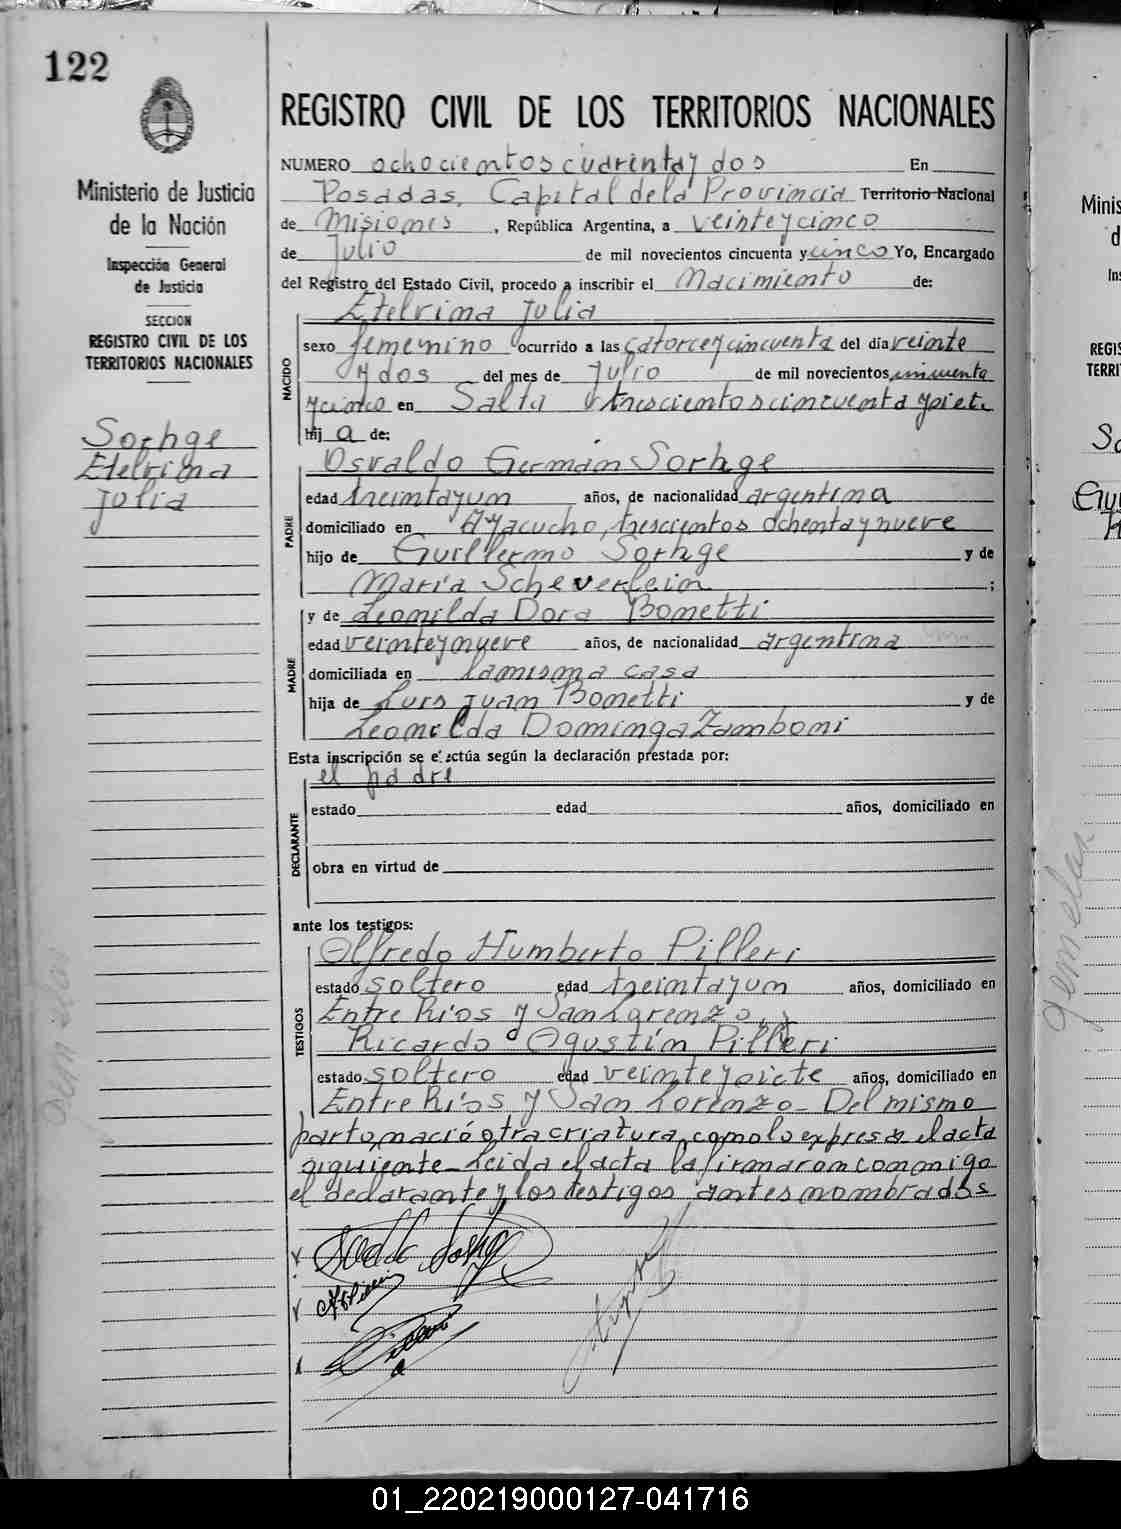 122
Ministerio de Justicia
de la Nación
Inspección General
de Justicia
SECCION
REGISTRO CIVIL DE LOS
TERRITORIOS NACIONALES
Sorhge
Etelvina
Julia
REGISTRO CIVIL DE LOS TERRITORIOS NACIONALES
NUMERO ochocientos cuarenta y dos En
Posadas, Capital de la Provincia Territorio Nacional
de Misiones, República Argentina, a veinte y cinco
de Julio de mil novecientos cincuenta y cinco Yo, Encargado
del Registro del Estado Civil, procedo a inscribir el Nacimiento de:
Etelvina Julia
NACIDO
sexo femenino ocurrido a las catorce y cincuenta del día veinte
y dos del mes de Julio de mil novecientos cincuenta
y cinco en Salta trescientos cincuenta y siete
hij a de:
Osvaldo Germán Sorhge
PADRE
edad treinta y un años, de nacionalidad argentina
domiciliado en Ayacucho, trescientos ochenta y nueve
hijo de Guillermo Sorhge y de
María Scheverlein ;
MADRE
y de Leonilda Dora Bonetti
edad veinte y nueve años, de nacionalidad argentina
domiciliada en la misma casa
hija de Luis Juan Bonetti y de
Leonilda Dominga Zamboni
Esta inscripción se efectúa según la declaración prestada por:
el padre
DECLARANTE
estado edad años, domiciliado en
obra en virtud de
ante los testigos:
Alfredo Humberto Pilleri
TESTIGOS
estado soltero edad treinta y un años, domiciliado en
Entre Ríos y San Lorenzo,
Ricardo Agustín Pilleri
estado soltero edad veinte y siete años, domiciliado en
Entre Ríos y San Lorenzo - Del mismo
parto nació otra criatura, como lo expresa el acta
siguiente - Leida el acta la firmaron conmigo
el declarante y los testigos antes nombrados
gemelas
Minis
d
Ins
REGIS
TERRI
So
01_220219000127-041716